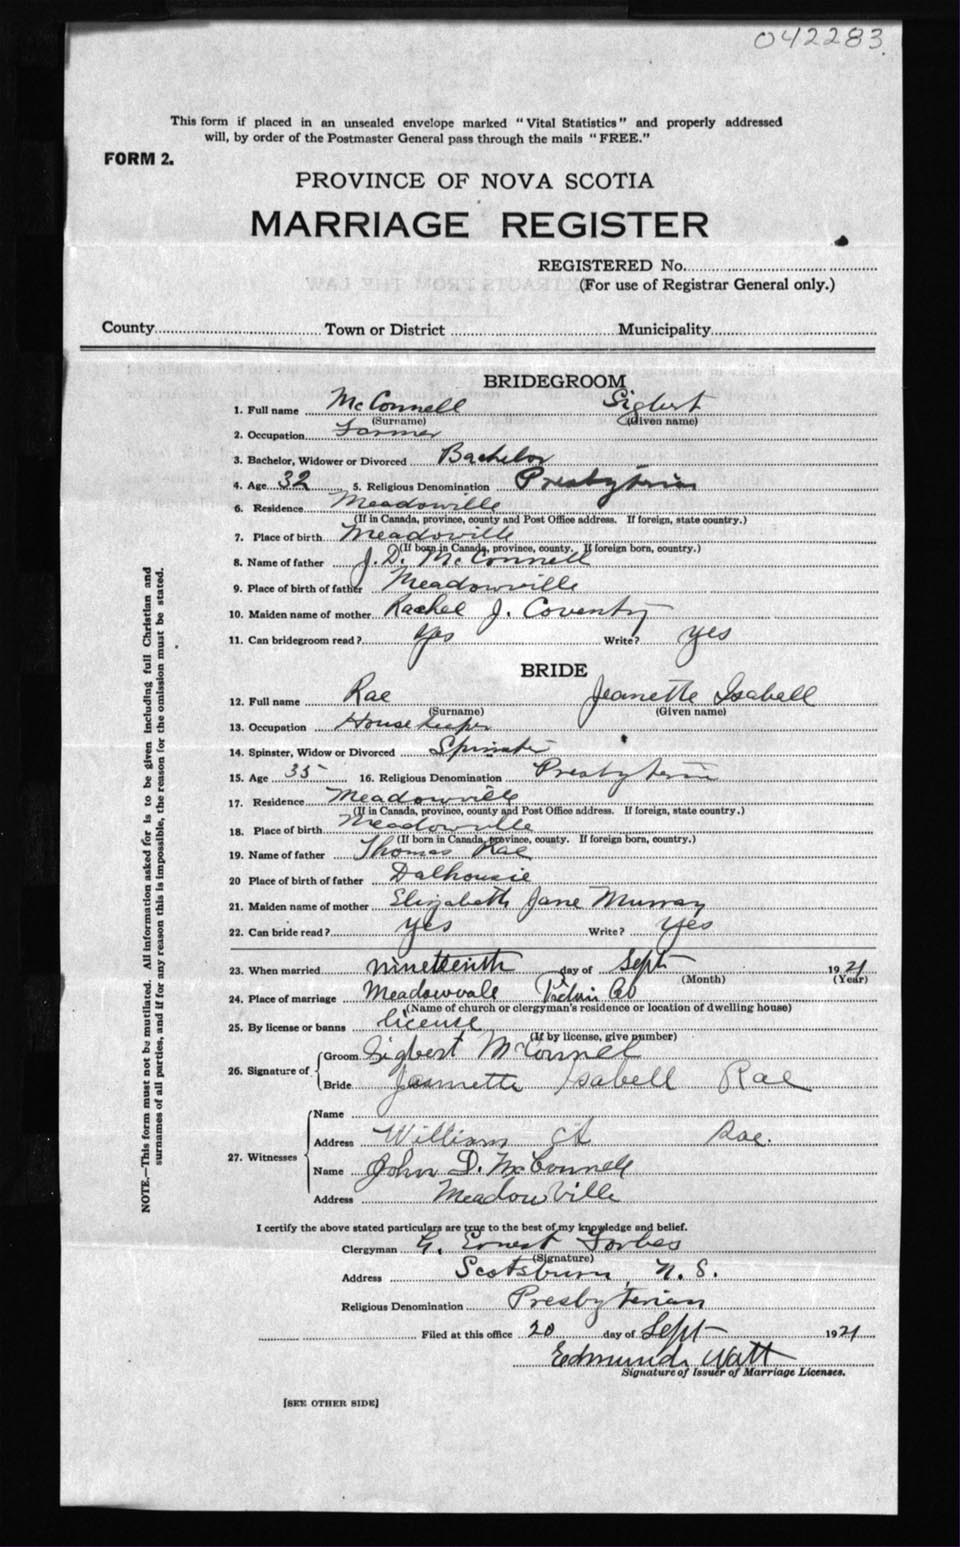 042283
This form if placed in an unsealed envelope marked "Vital Statistics" and properly addressed
will, by order of the Postmaster General pass through the mails "FREE."
FORM 2.
PROVINCE OF NOVA SCOTIA
MARRIAGE REGISTER
REGISTERED No.
(For use of Registrar General only.)
County Town or District Municipality
BRIDEGROOM
1. Full name McConnell Sigbert
(Surname) (Given name)
2. Occupation Farmer
3. Bachelor, Widower or Divorced Bachelor
4. Age 32 5. Religious Denomination Presbyterian
6. Residence Meadowville
(If in Canada, province, county and Post Office address. If foreign, state country.)
7. Place of birth Meadoville
(If born in Canada, province, county. If foreign born, country.)
8. Name of father J. D. McConnell
9. Place of birth of father Meadowville
10. Maiden name of mother Rachel J. Coventry
11. Can bridegroom read? Yes Write? yes
BRIDE
12. Full name Rae Jeanette Isabell
(Surname) (Given name)
13. Occupation Housekeeper
14. Spinster, Widow or Divorced Spinster
15. Age 35 16. Religious Denomination Presbyterian
17. Residence Meadowville
(If in Canada, province, county and Post Office address. If foreign, state country.)
18. Place of birth Meadowville
(If born in Canada, province, county. If foreign born, country.)
19. Name of father Thomas Rae
20 Place of birth of father Dalhousie
21. Maiden name of mother Elizabeth Jane Murray
22. Can bride read? yes Write? Yes
23. When married nineteenth day of Sept 1921
(Month) (Year)
24. Place of marriage Meadowvale Pictou Co
(Name of church or clergyman's residence or location of dwelling house)
25. By license or banns license
(If by license, give number)
26. Signature of Groom Sigbert McConnel
Bride Jeannette Isabell Rae
27. Witnesses
Name
Address William Rae.
Name John D. McConnell
Address Meadowville
I certify the above stated particulars are true to the best of my knowledge and belief.
Clergyman G. Ernest Forbes
(Signature)
Address Scotsburn N. S.
Religious Denomination Presbyterian
Filed at this office 20 day of Sept 1921
Edmund Watt
Signature of Issuer of Marriage Licenses.
[SEE OTHER SIDE]
NOTE.—This form must not be mutilated. All information asked for is to be given including full Christian and
surnames of all parties, and if for any reason this is impossible, the reason for the omission must be stated.